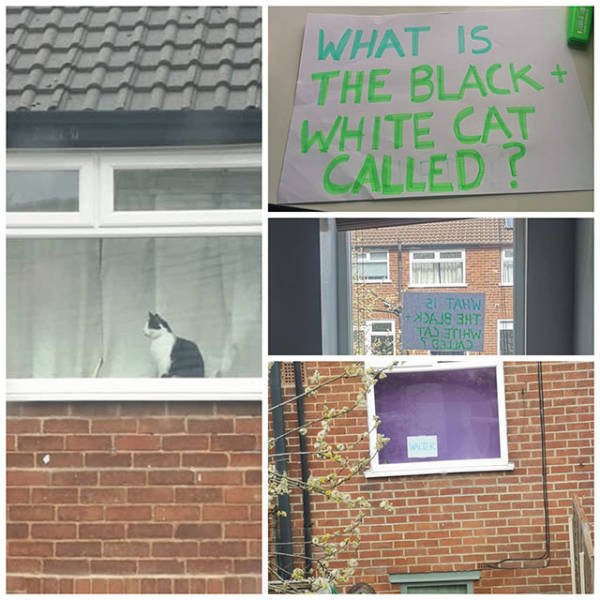 WHAT IS
THE BLACK +
WHITE CAT
CALLED ?
WHAT IS
THE BLACK +
WHITE CAT
CALLED ?
WALTER